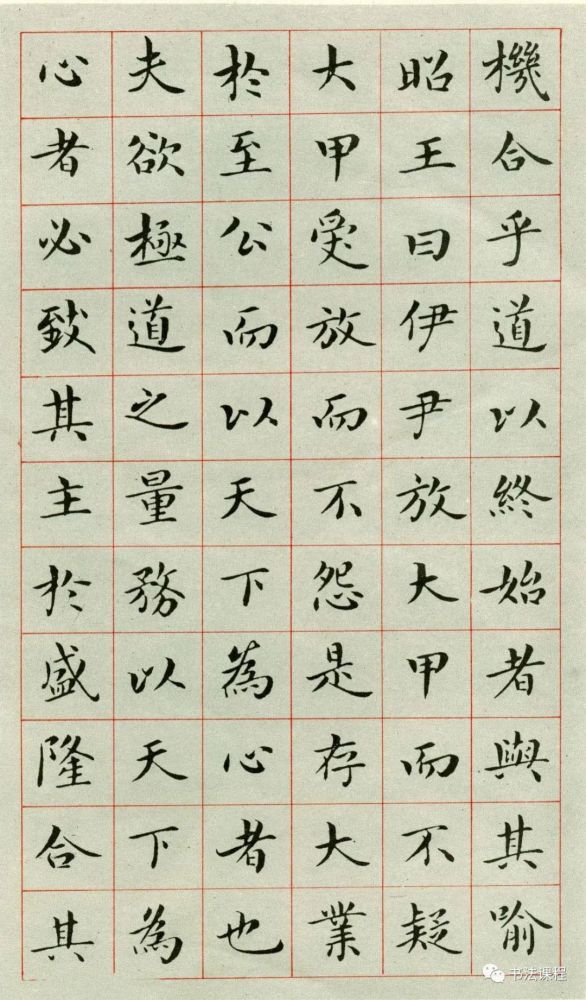 機合乎道以終始者與其喻
昭王曰伊尹放大甲而不疑
大甲受放而不怨是存大業
於至公而以天下為心者也
夫欲極道之量務以天下為
心者必致其主於盛隆合其
书法课程